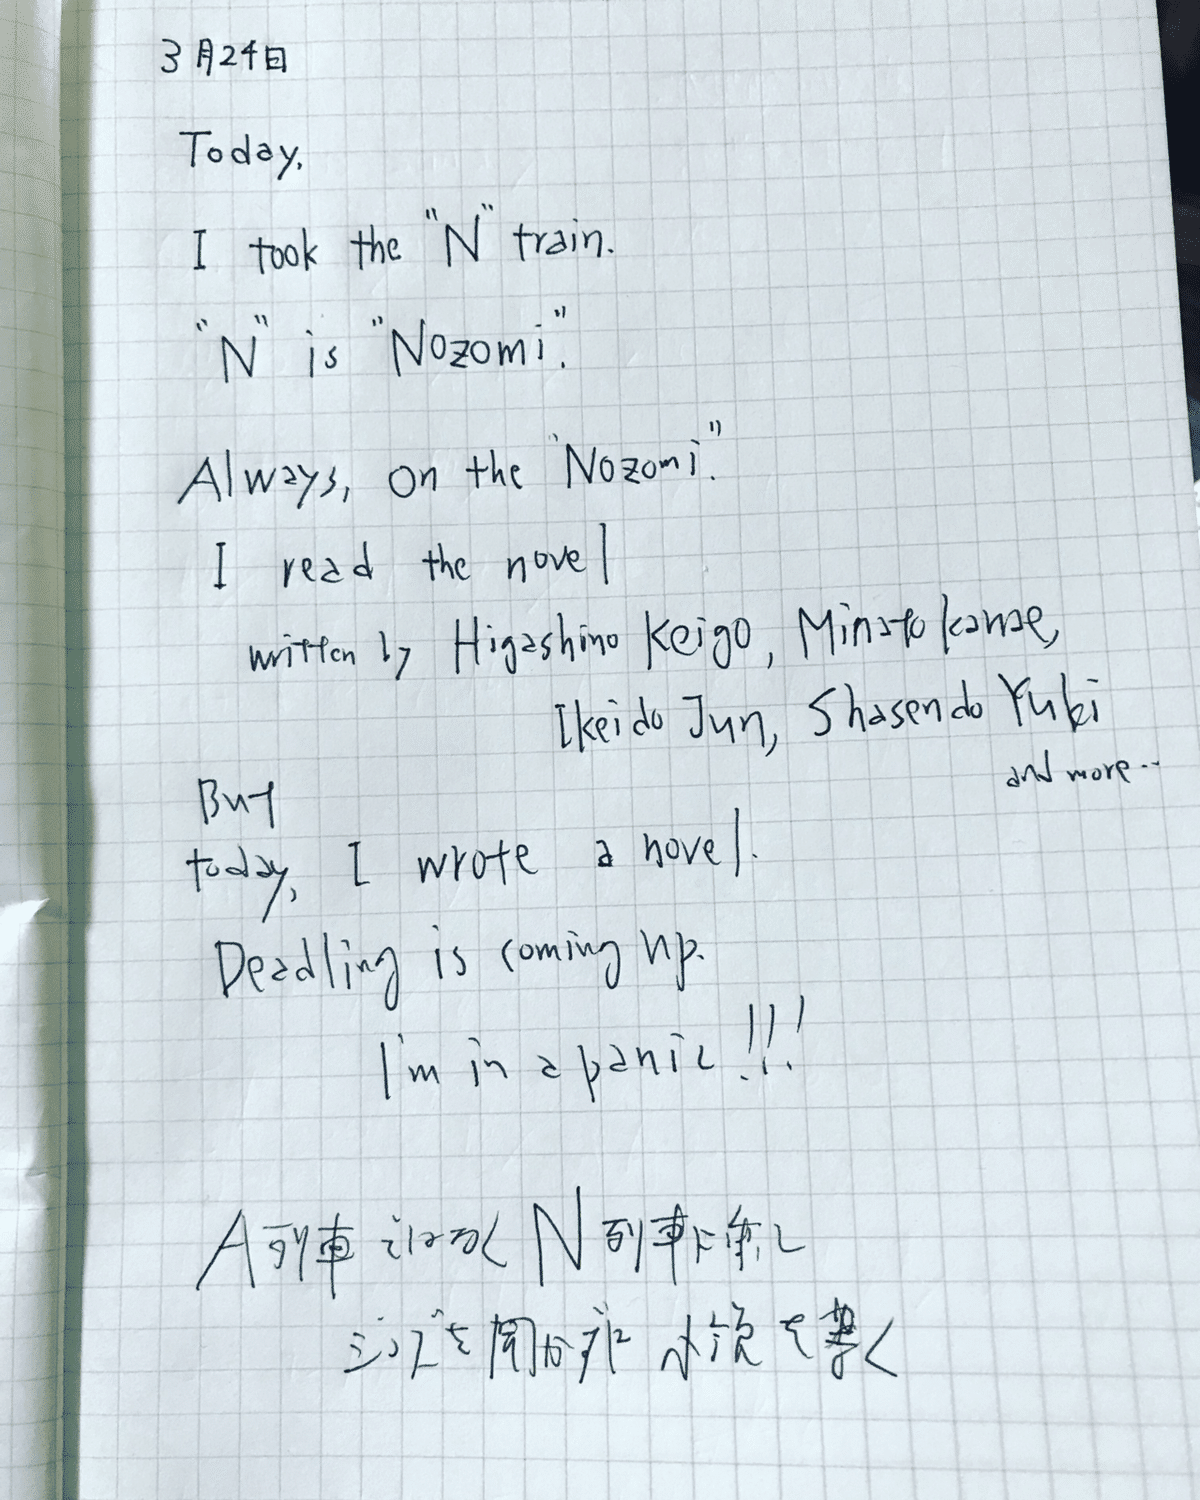 3月24日
Today,
I took the "N" train.
"N" is "Nozomi".
Always, on the "Nozomi".
I read the novel
written by Higashino Keigo, Minato kanae,
Ikeido Jun, Shasendo Yuki
and more..
But
today, I wrote a novel.
Deadling is coming up.
I'm in a panic!!!
A列車ではなくN列車に乗し
ジャズを聞かずに小説を書く